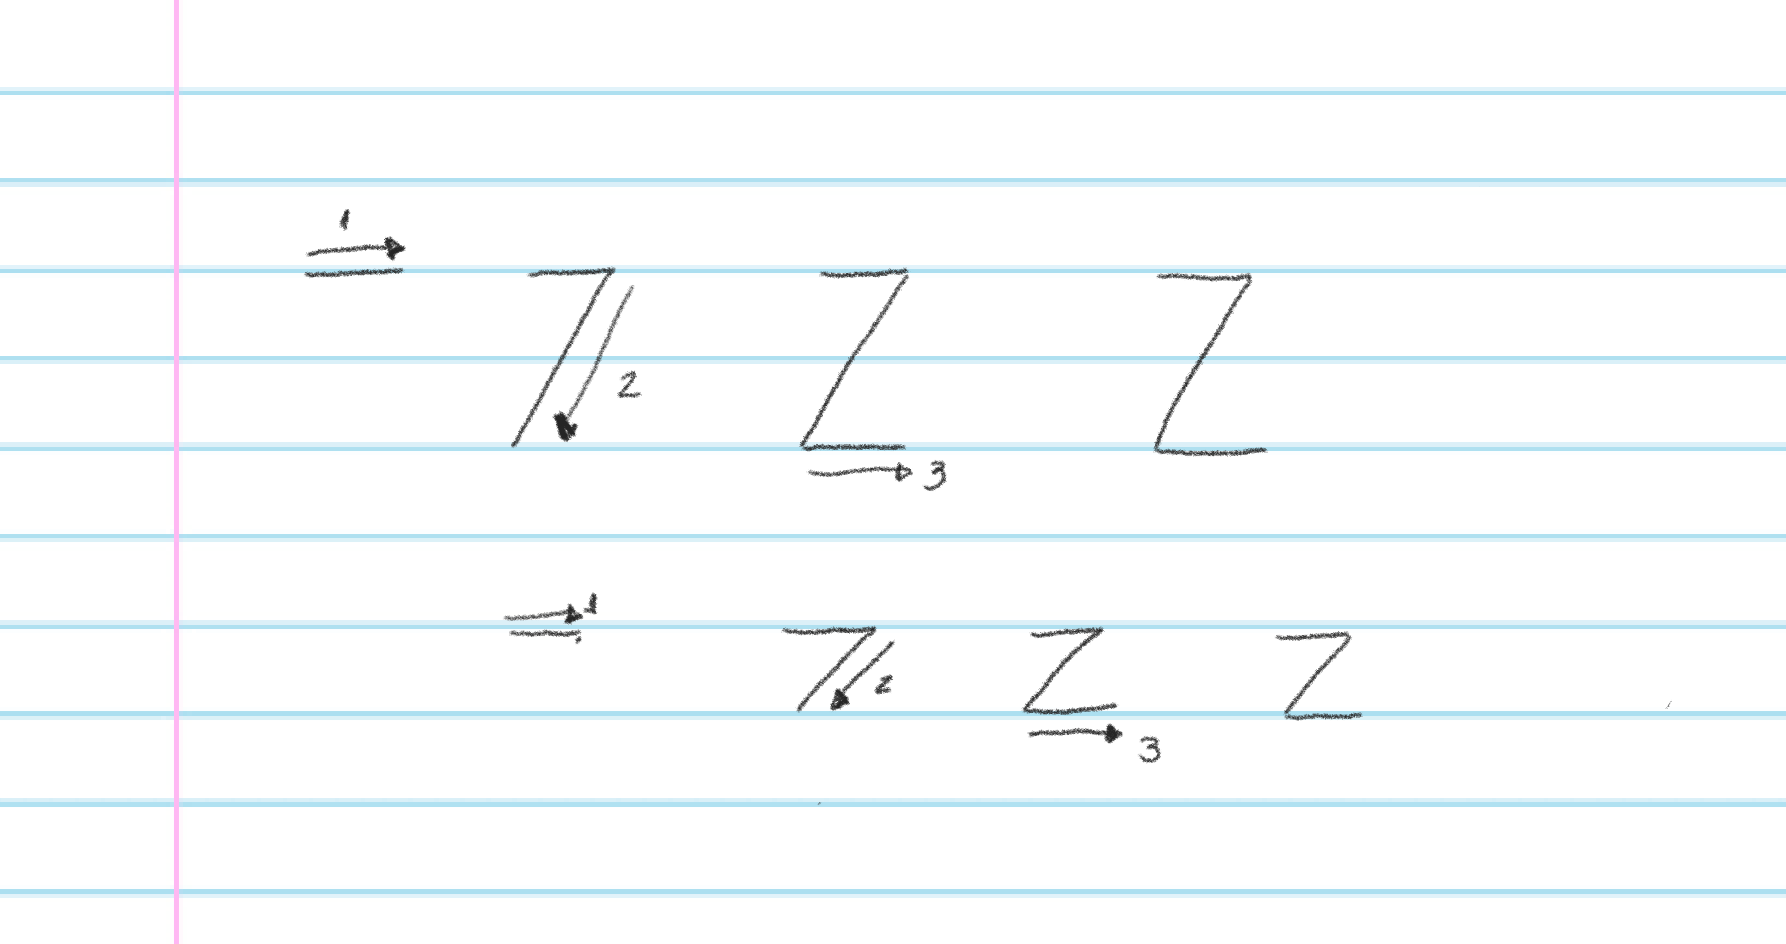 1 2 Z 3 Z
1 2 Z 3 z